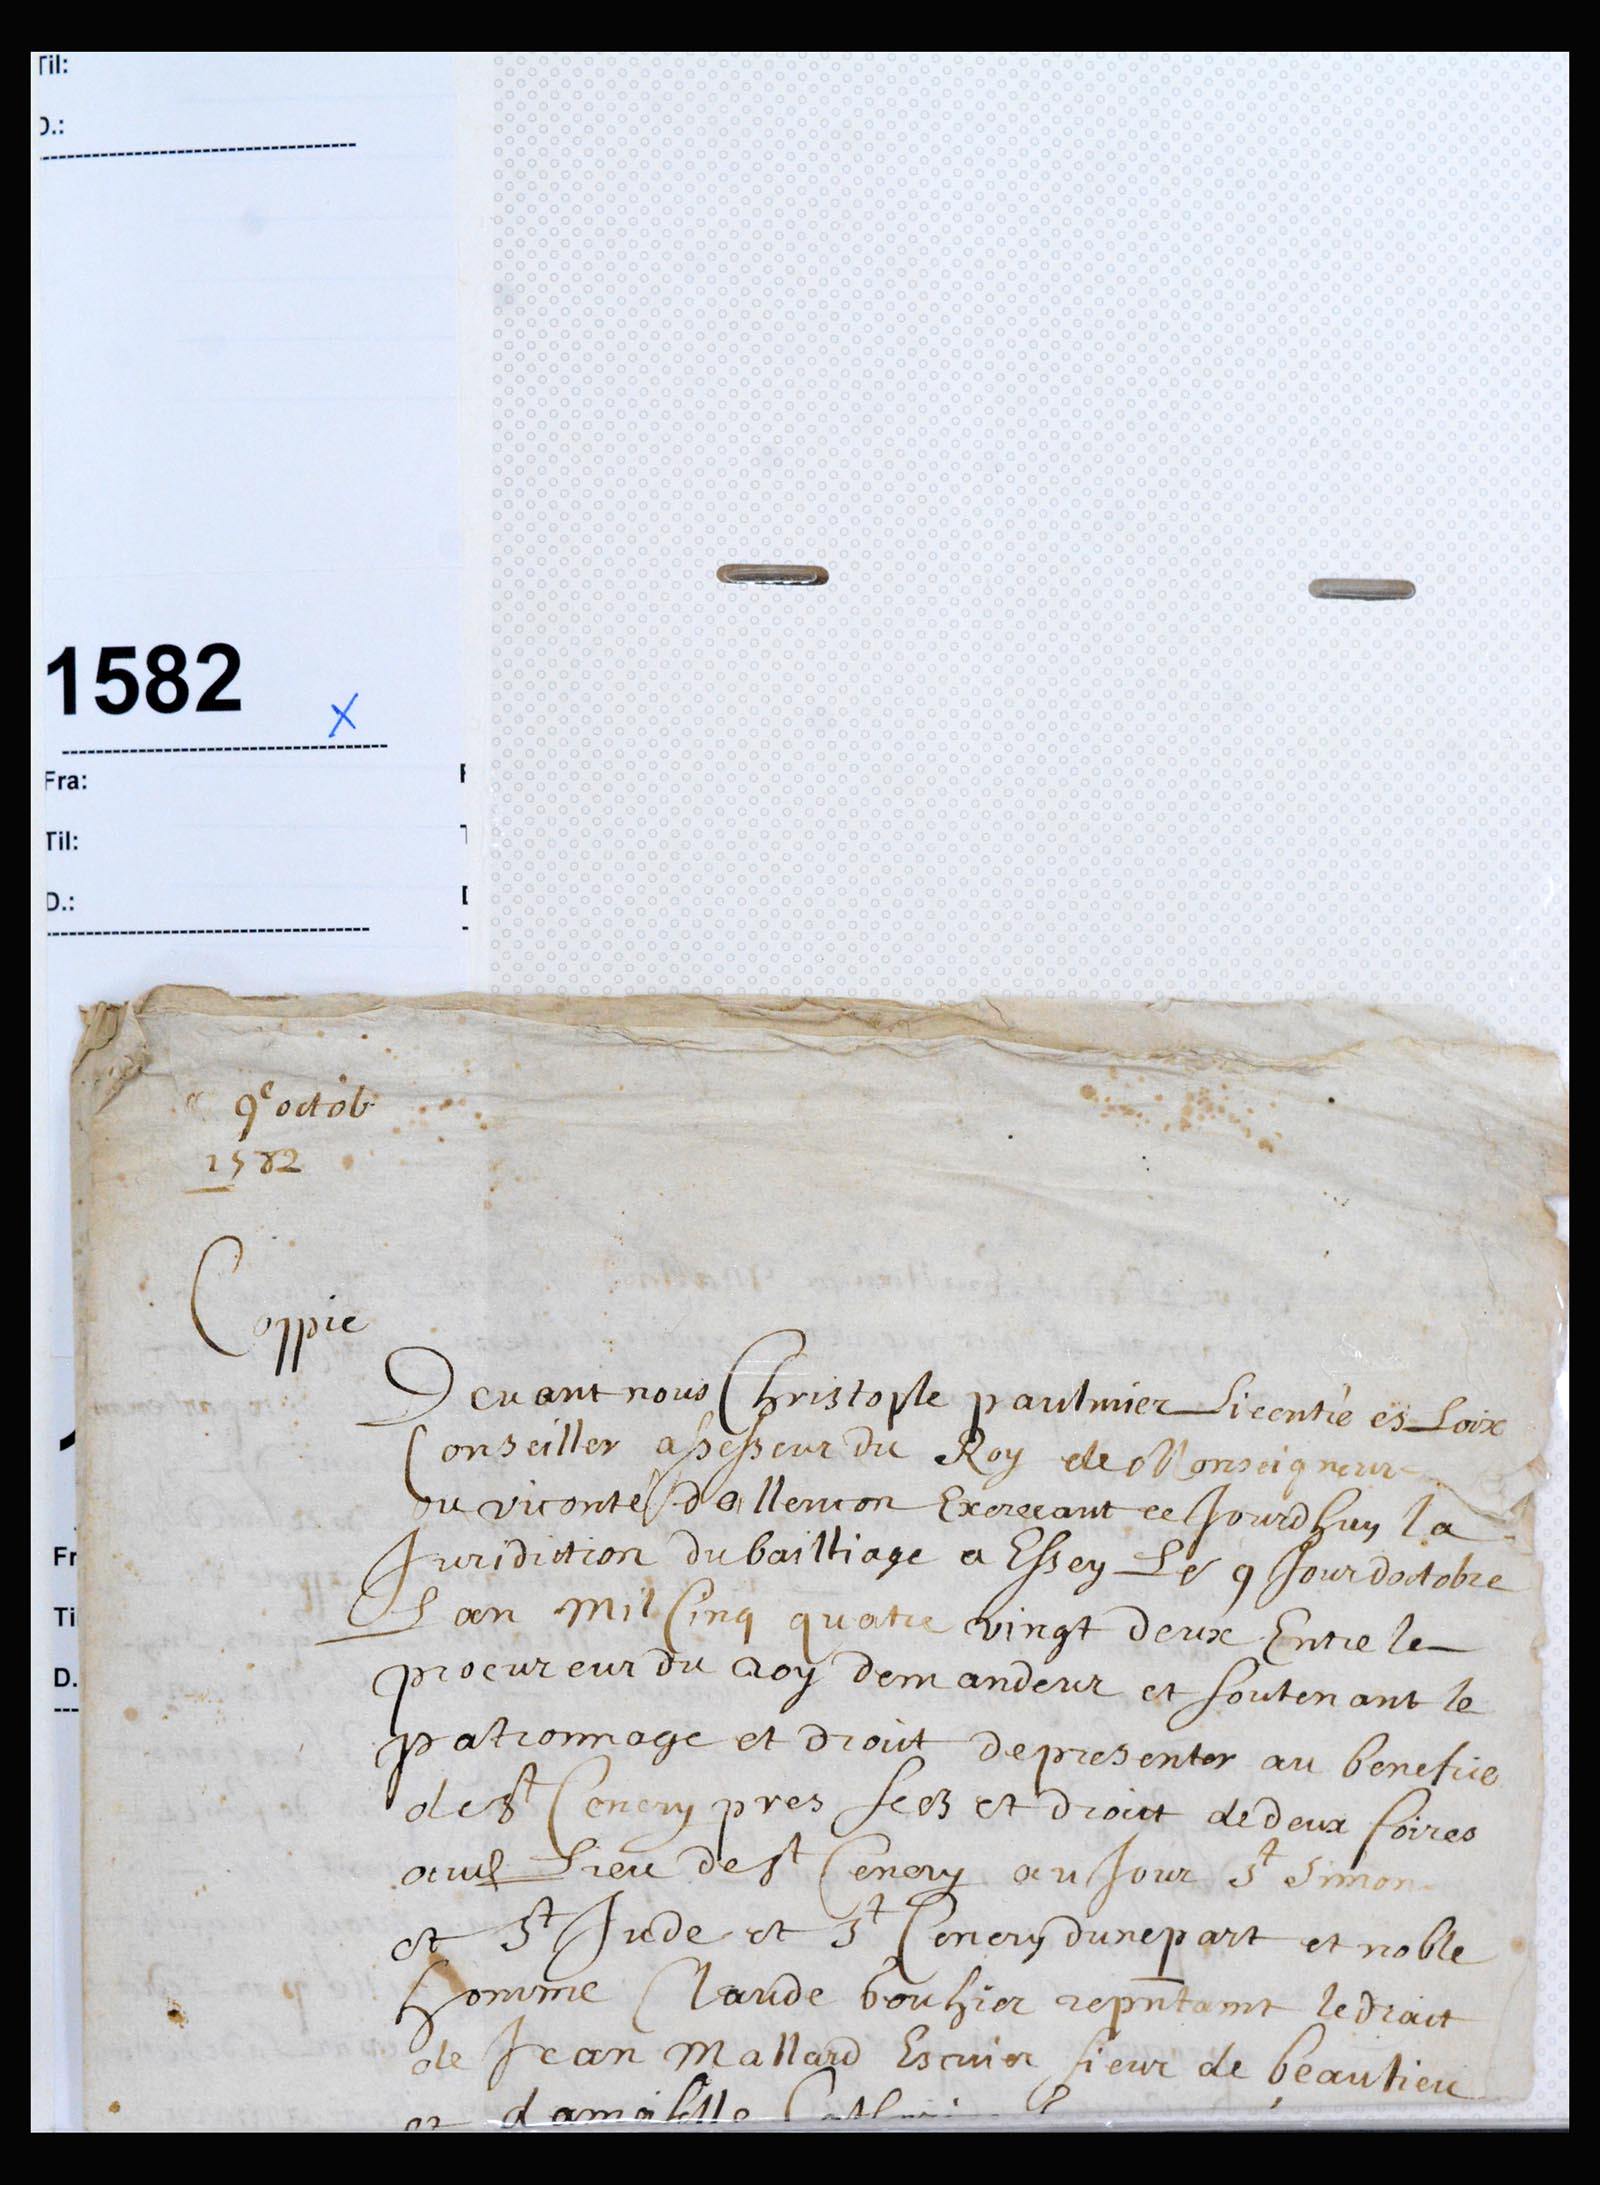 Til:
D.:
1582
X
Fra:
Til:
D.:
Fr
Ti
D.
9e octob
1582
Coppie
Devant nous Christople paulmier Licentié es Loix
Conseiller assesseur du Roy de Monseigneur
ou viconte dallencon Exercant ce Jourdhuy la
Juridiction du bailliage a Essey Le 9 Jour doctobre
Lan Mil Cinq quatre vingt deux Entre le
procureur du Roy demandeur et soutenant le
patronnage et droict de presenter au benefice
de St Cenery pres sees et droict de deux foires
aud Lieu de St Cenery au Jour St Simon
et St Jude et St Cenery dune part et noble
homme Claude bouhier repntant le droict
de Jean Mallard Escuier sieur de beaulieu
et damoiselle